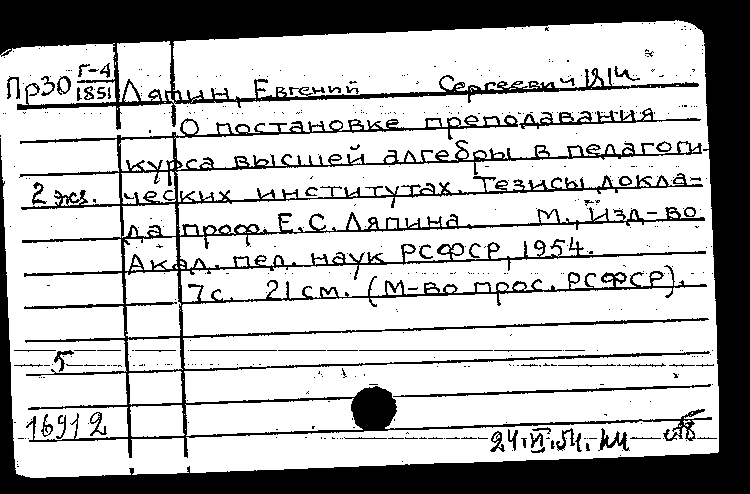 Пр30 Г-4/1851 Ляпин, Евгений Сергеевич 1914
О постановке преподавания
курса высшей алгебры в педагоги-
2 экз. ческих институтах. Тезисы докла-
да проф. Е.С. Ляпина. М., Изд-во
Акад. пед. наук РСФСР, 1954.
7 с. 21 см. (М-во прос. РСФСР).
5
16912
24.VI.54.